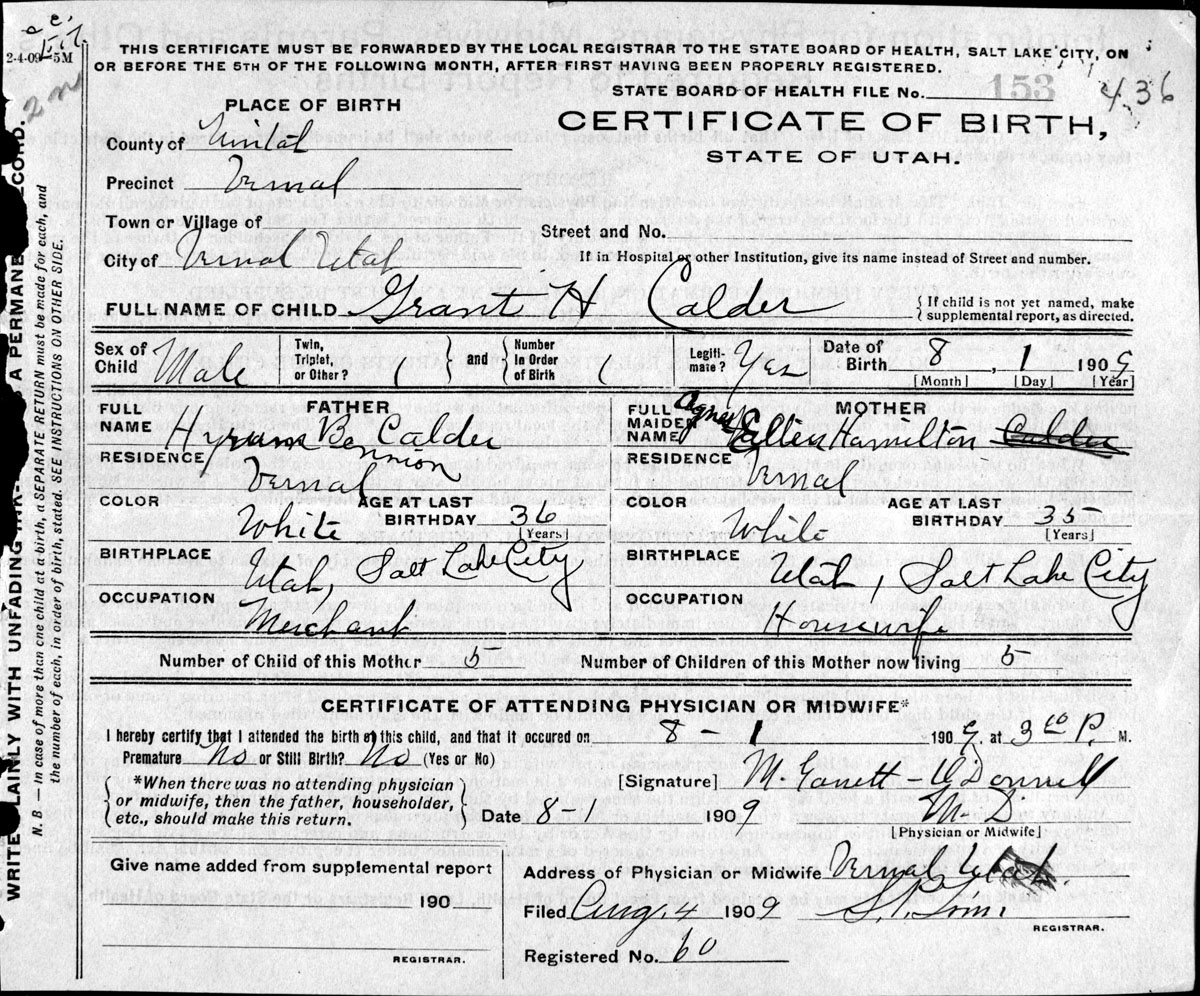 2-4-09-5M
2nd
THIS CERTIFICATE MUST BE FORWARDED BY THE LOCAL REGISTRAR TO THE STATE BOARD OF HEALTH, SALT LAKE CITY, ON
OR BEFORE THE 5TH OF THE FOLLOWING MONTH, AFTER FIRST HAVING BEEN PROPERLY REGISTERED.
STATE BOARD OF HEALTH FILE No. 153 436
PLACE OF BIRTH
CERTIFICATE OF BIRTH,
STATE OF UTAH.
County of Uintah
Precinct Vernal
Town or Village of
Street and No.
City of Vernal Utah
If in Hospital or other Institution, give its name instead of Street and number.
FULL NAME OF CHILD Grant H Calder
If child is not yet named, make
supplemental report, as directed.
Sex of Child Male
Twin, Triplet, or Other?
and
Number in Order of Birth
Legiti- mate? Yes
Date of Birth 8, 1 1909
[Month] [Day] [Year]
FATHER
FULL NAME Hyrum Bo Calder
Bennion
RESIDENCE Vernal
COLOR White
AGE AT LAST BIRTHDAY 36
[Years]
BIRTHPLACE Utah, Salt Lake City
OCCUPATION Merchant
MOTHER
FULL MAIDEN NAME Agnes Ellen Hamilton Calder
RESIDENCE Vernal
COLOR White
AGE AT LAST BIRTHDAY 35
[Years]
BIRTHPLACE Utah, Salt Lake City
OCCUPATION Housewife
Number of Child of this Mother 5
Number of Children of this Mother now living 5
CERTIFICATE OF ATTENDING PHYSICIAN OR MIDWIFE*
I hereby certify that I attended the birth of this child, and that it occured on 8 - 1 1909, at 3 00 P. M.
Premature No or Still Birth? No (Yes or No)
*When there was no attending physician
or midwife, then the father, householder,
etc., should make this return.
[Signature] M. Garrett - O'Donnell
Date 8-1 1909
M. D.
[Physician or Midwife]
Give name added from supplemental report
190
REGISTRAR.
Address of Physician or Midwife Vernal Utah.
Filed Aug. 4 1909
REGISTRAR.
Registered No. 60
WRITE PLAINLY WITH UNFADING INK- A PERMANE CORD.
N. B. — In case of more than one child at a birth, a SEPARATE RETURN must be made for each, and
the number of each, in order of birth, stated. SEE INSTRUCTIONS ON OTHER SIDE.